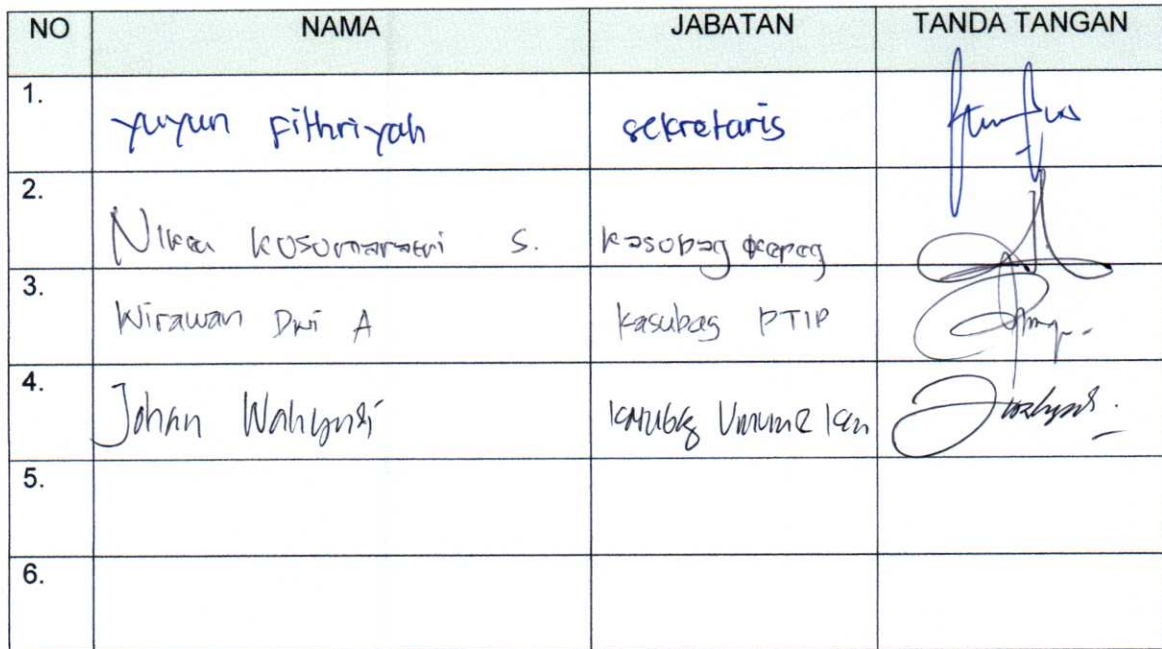 NO NAMA JABATAN TANDA TANGAN
1. yuyun Fithriyah sekretaris
2. kusumaratri S. kasubag kepeg
3. Wirawan Dwi A kasubag PTIP
4. Johan Wahyudi kasubag Umum
5.
6.